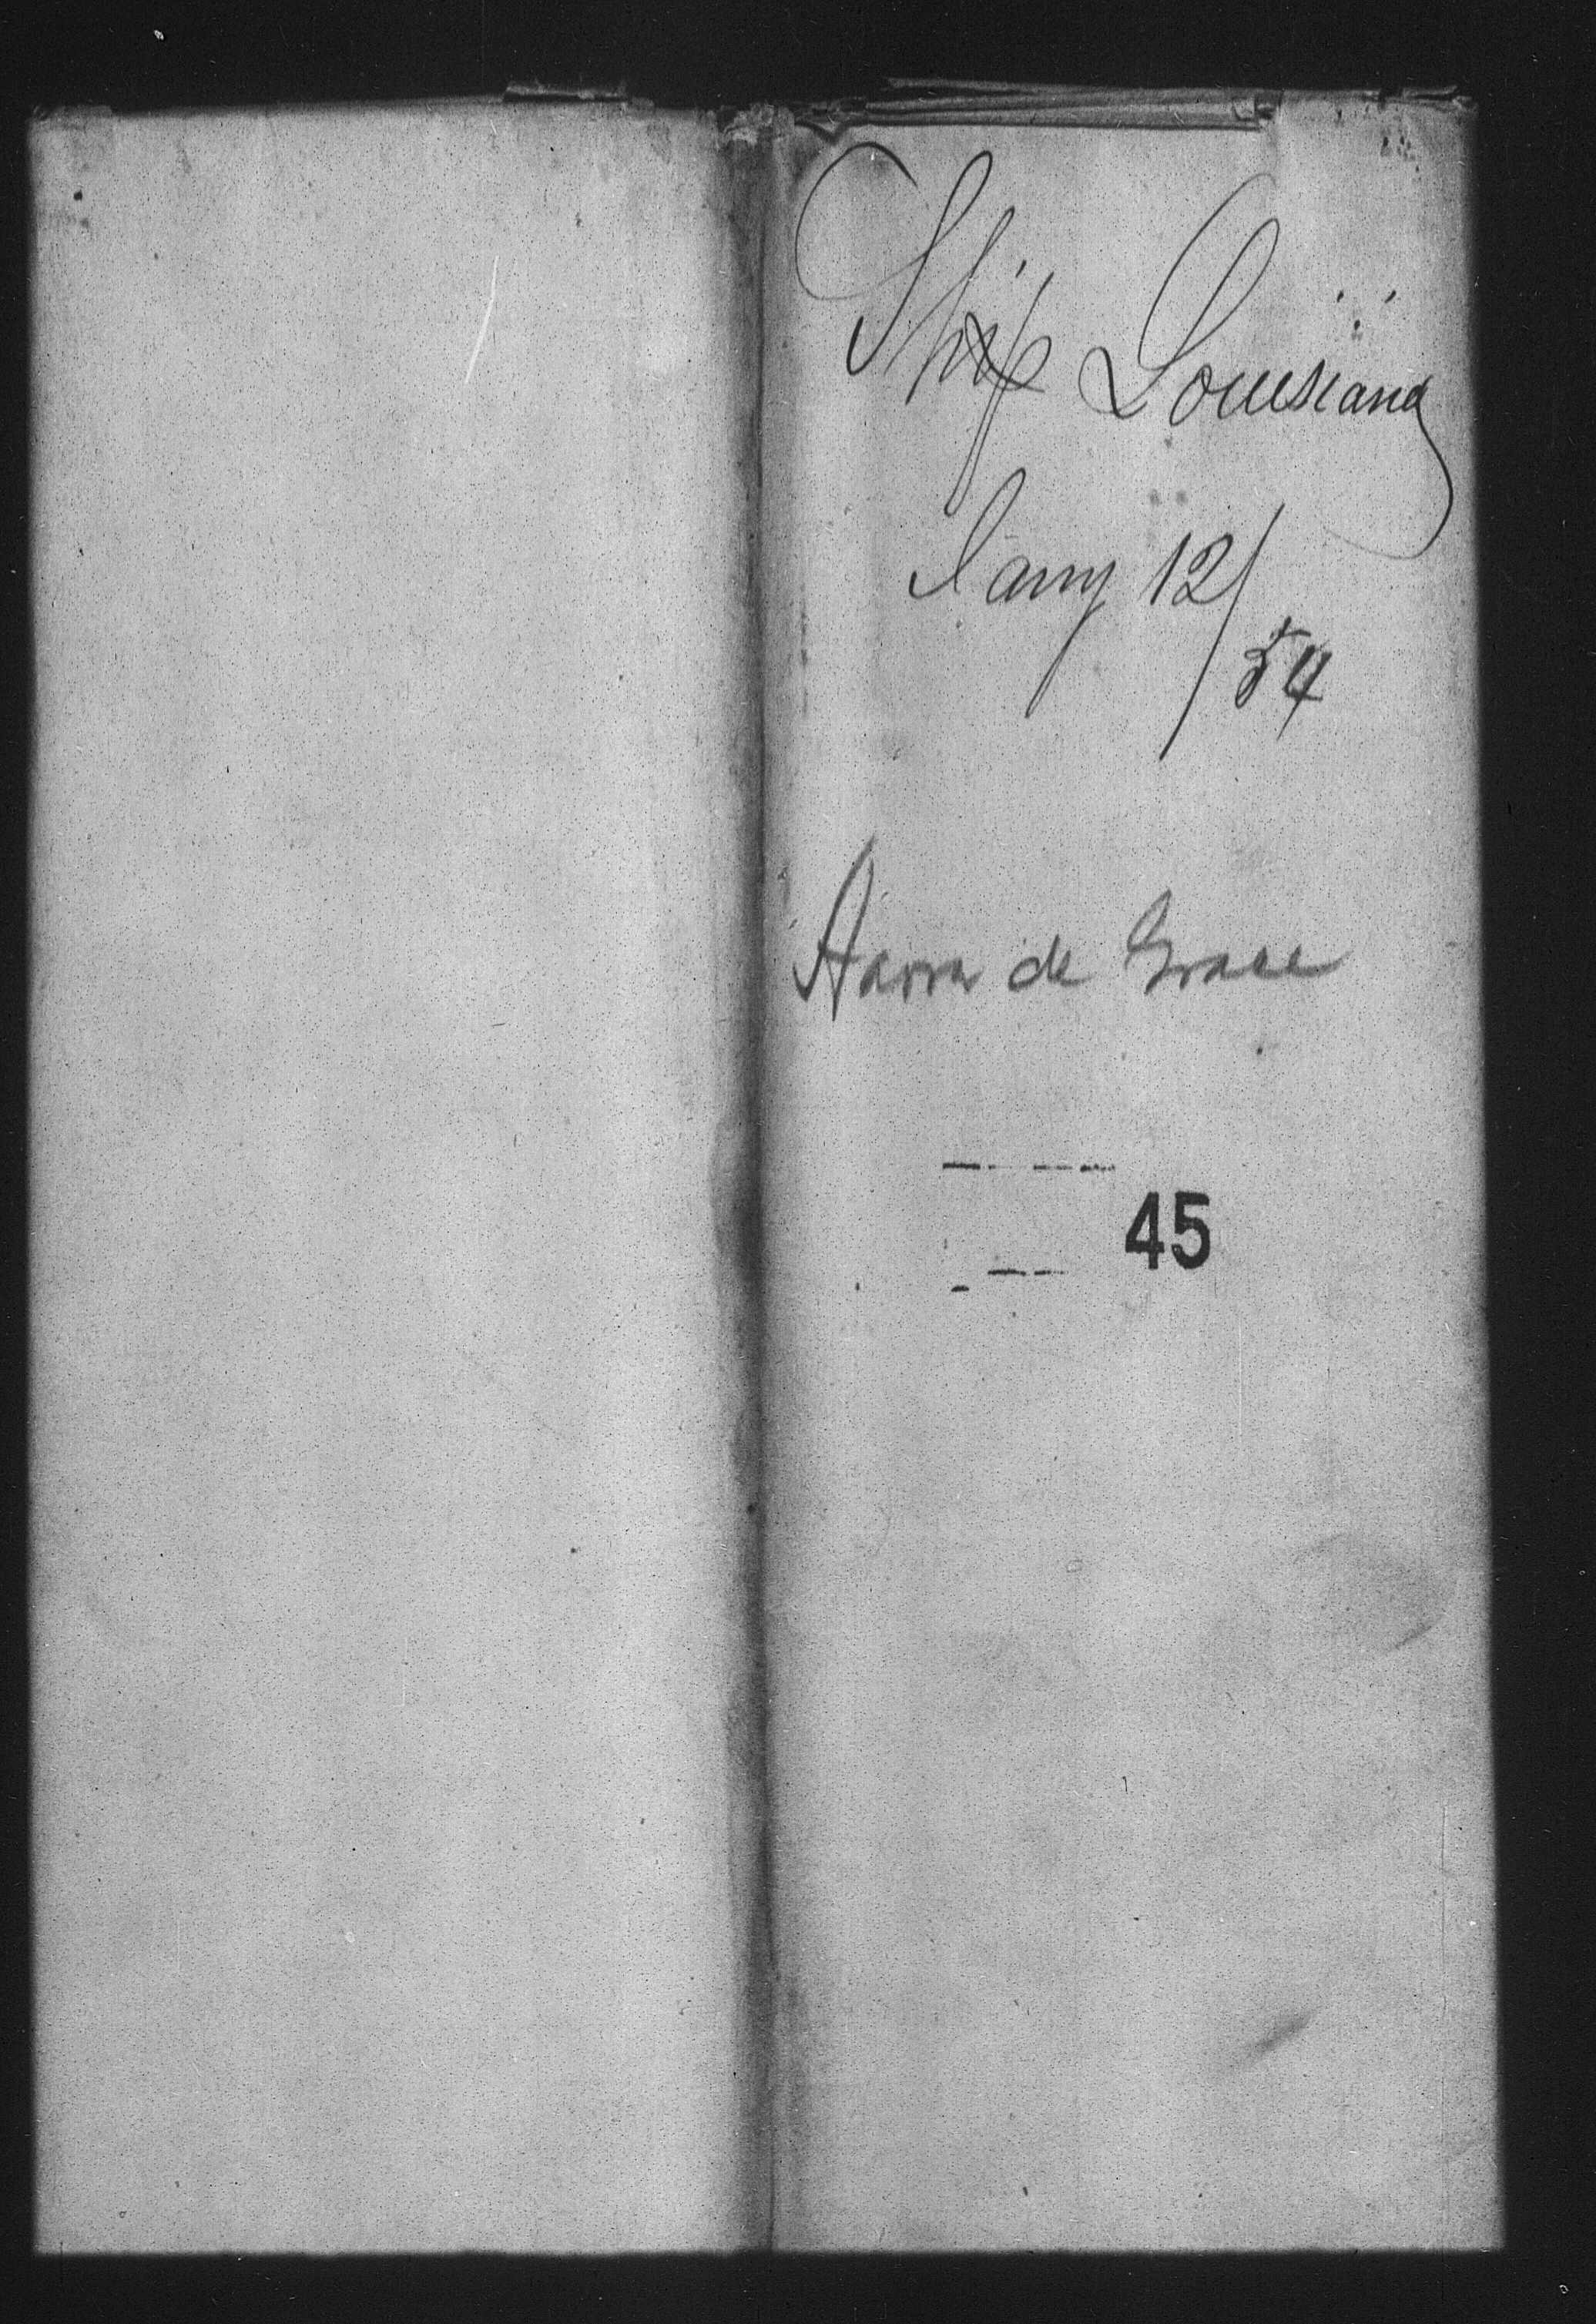 Ship Louisiana
Jany 12/
54
Havre de Grace
45